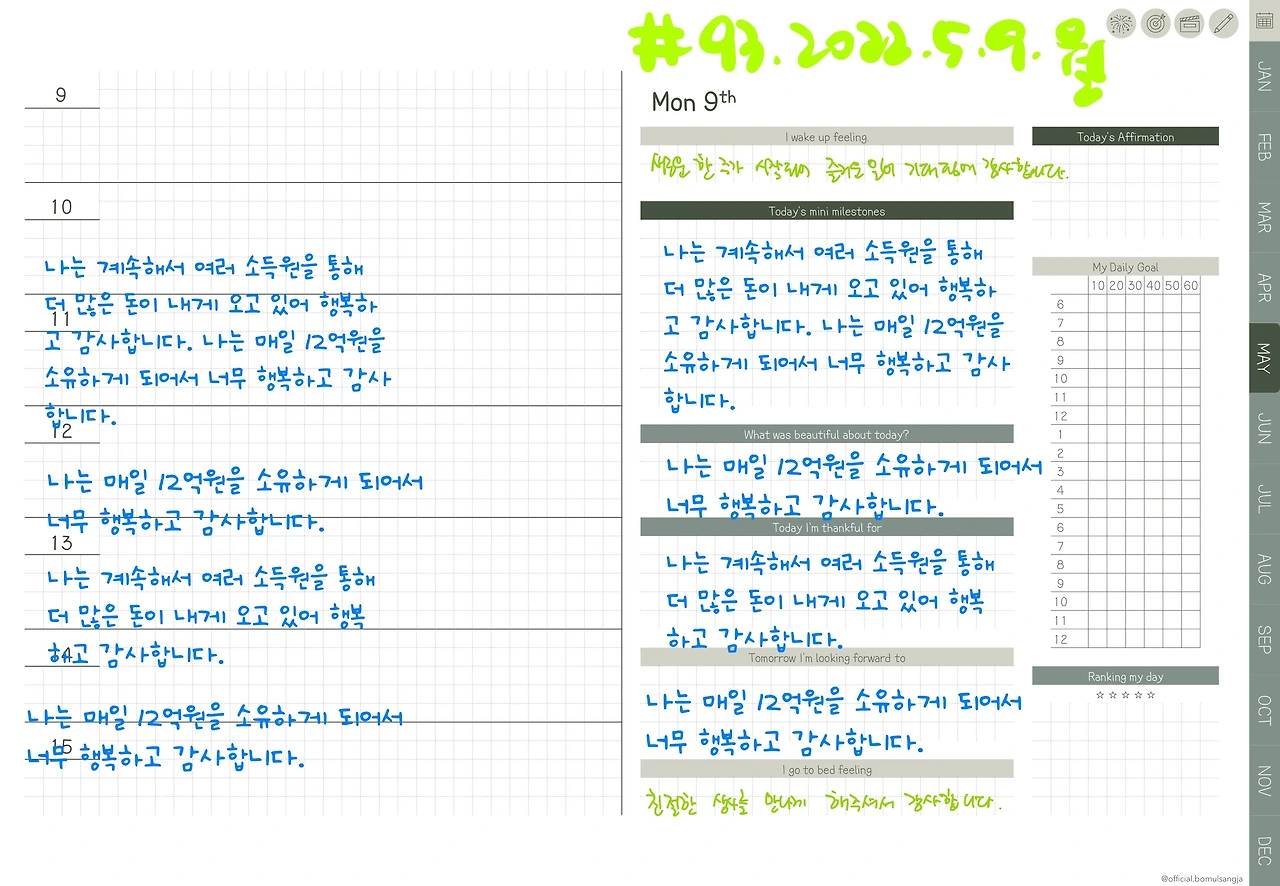 #93.2022.5.9.월
Mon 9th
9
10
나는 계속해서 여러 소득원을 통해
더 많은 돈이 내게 오고 있어 행복하
11
고 감사합니다. 나는 매일 12억원을
소유하게 되어서 너무 행복하고 감사
합니다.
12
나는 매일 12억원을 소유하게 되어서
너무 행복하고 감사합니다.
13
나는 계속해서 여러 소득원을 통해
더 많은 돈이 내게 오고 있어 행복
하고 감사합니다.
14
나는 매일 12억원을 소유하게 되어서
15
너무 행복하고 감사합니다.
I wake up feeling.
새로운 한 주가 시작되어 즐거운 일이 기대됨에 감사합니다.
Today's mini milestones
나는 계속해서 여러 소득원을 통해
더 많은 돈이 내게 오고 있어 행복하
고 감사합니다. 나는 매일 12억원을
소유하게 되어서 너무 행복하고 감사
합니다.
What was beautiful about today?
나는 매일 12억원을 소유하게 되어서
너무 행복하고 감사합니다.
Today I'm thankful for
나는 계속해서 여러 소득원을 통해
더 많은 돈이 내게 오고 있어 행복
하고 감사합니다.
Tomorrow I'm looking forward to
나는 매일 12억원을 소유하게 되어서
너무 행복하고 감사합니다.
I go to bed feeling
친절한 만나게 해주셔서 감사합니다.
Today's Affirmation
My Daily Goal
10 20 30 40 50 60
6
7
8
9
10
11
12
1
2
3
4
5
6
7
8
9
10
11
12
Ranking my day
☆☆☆☆☆
JAN
FEB
MAR
APR
MAY
JUN
JUL
AUG
SEP
OCT
NOV
DEC
@official.bomulsangja